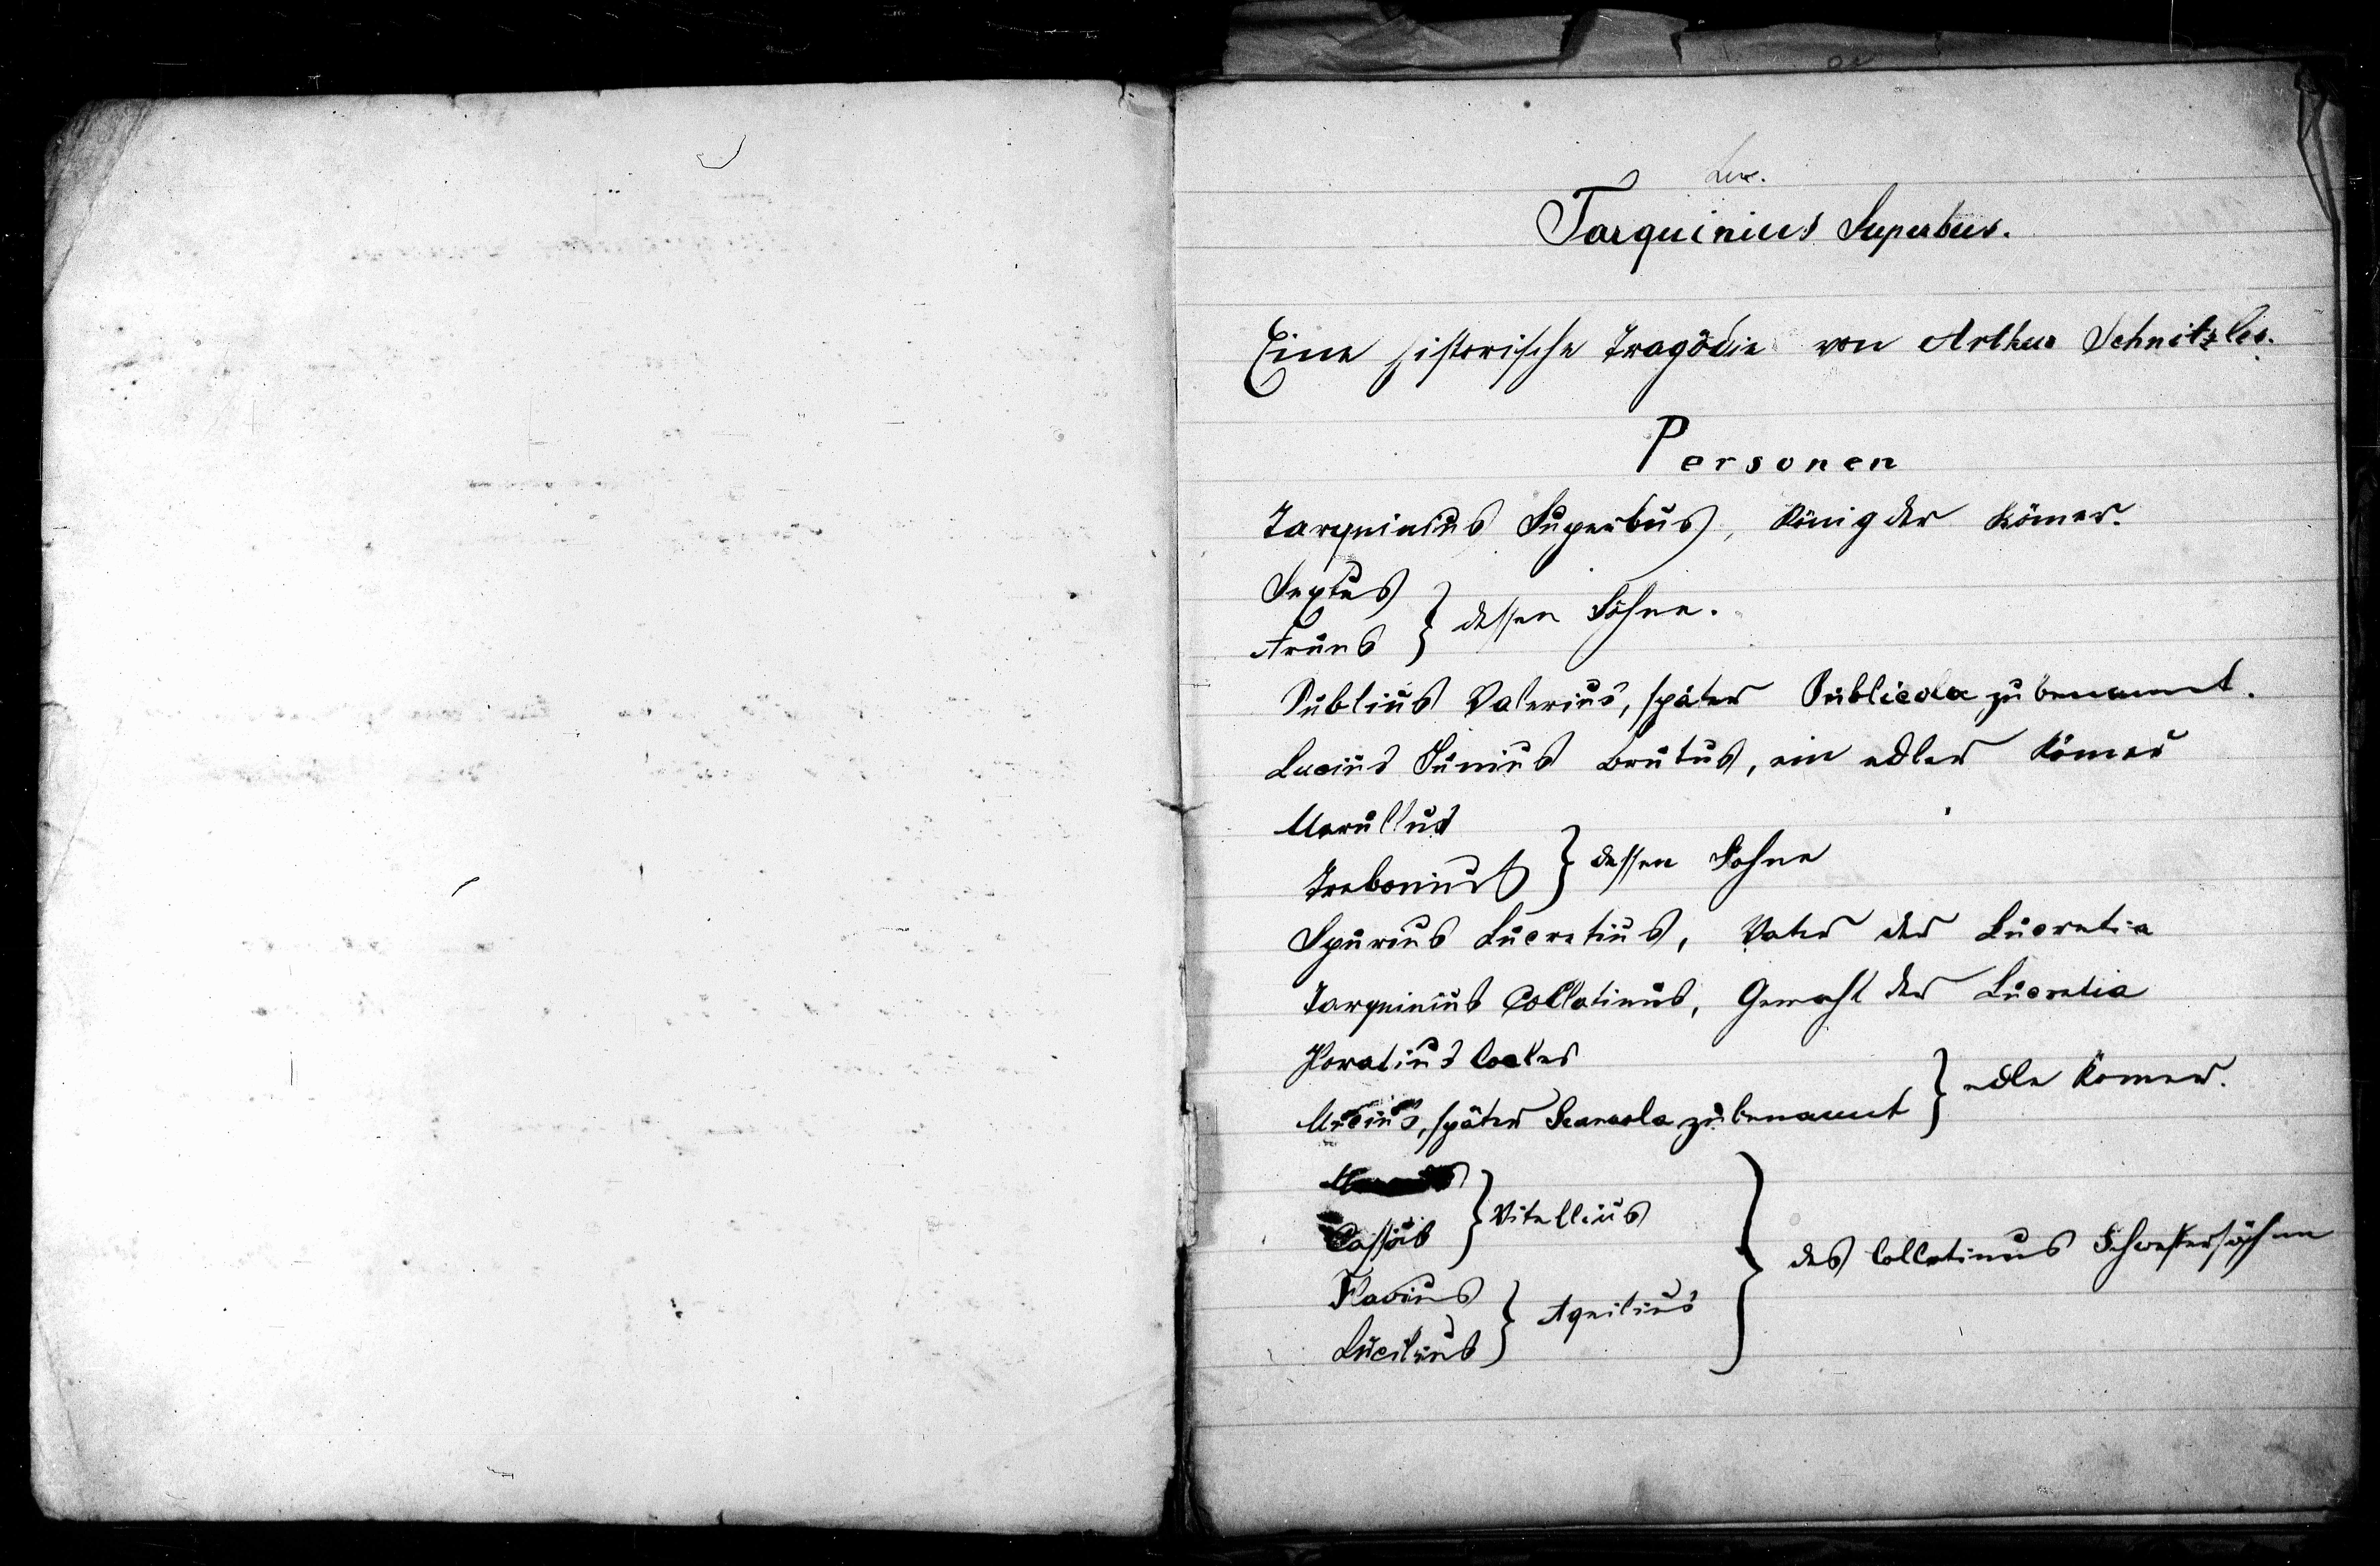 Luc.
Tarquinius Superbus.
Eine historische Tragödie von Arthur Schnitzler.
Personen
Tarquinius Superbus, König der Römer.
Sextus
Aruns } dessen Söhne.
Publius Valerius, später Publicola zubenannt.
Lucius Junius Brutus, ein edler Römer
Marullus
Trebonius } dessen Söhne
Spurius Lucretius, Vater der Lucretia
Tarquinius Collatinus, Gemahl der Lucretia
Horatius Cocles
Mucius, später Scaevola zubenannt } edle Römer.
Cassius } Vitellius
Flavius
Lucilius } Aquilius } des Collatinus Schwestersöhne